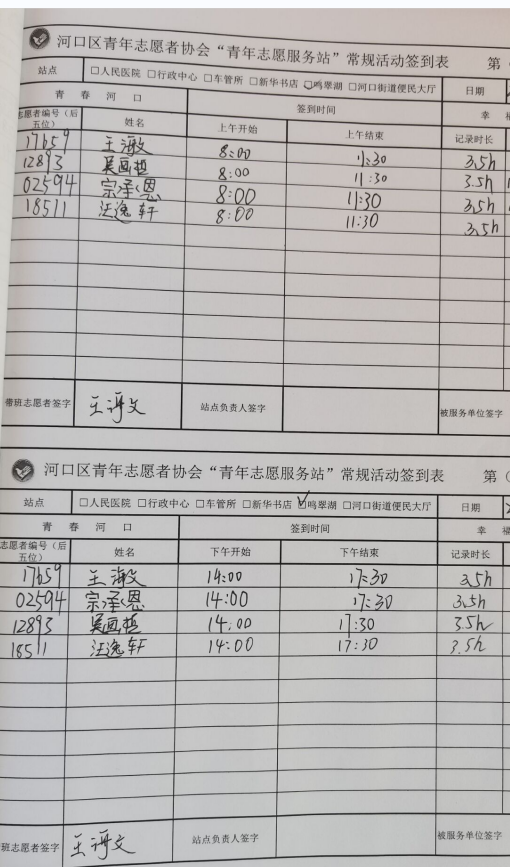 河口区青年志愿者协会“青年志愿服务站”常规活动签到表 第（
站点 □人民医院 □行政中心 □车管所 □新华书店 □鸣翠湖 □河口街道便民大厅 日期
青 春 河 口 签到时间 幸 福
志愿者编号（后五位） 姓名 上午开始 上午结束 记录时长
17659 王 8:00 11:30 3.5h
12893 吴 8:00 11:30 3.5h
02594 宗泽恩 8:00 11:30 3.5h
18511 汪逸轩 8:00 11:30 3.5h
带班志愿者签字 王 文 站点负责人签字 被服务单位签字
河口区青年志愿者协会“青年志愿服务站”常规活动签到表 第（
站点 □人民医院 □行政中心 □车管所 □新华书店 ☑鸣翠湖 □河口街道便民大厅 日期
青 春 河 口 签到时间 幸 福
志愿者编号（后五位） 姓名 下午开始 下午结束 记录时长
17659 王 14:00 17:30 3.5h
02594 宗泽恩 14:00 17:30 3.5h
12893 吴 14:00 17:30 3.5h
18511 汪逸轩 14:00 17:30 3.5h
班志愿者签字 王 文 站点负责人签字 被服务单位签字